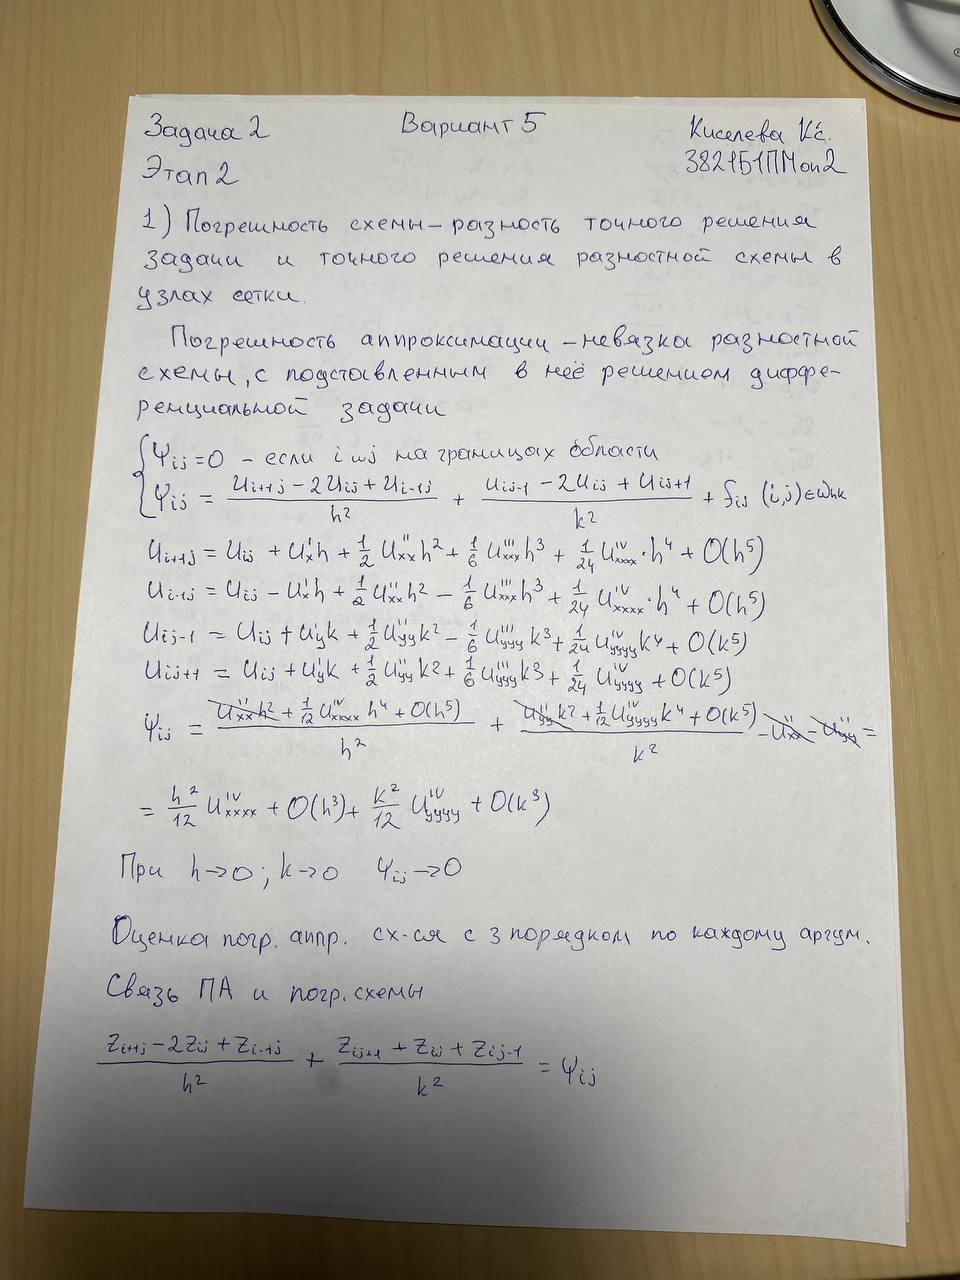 Задача 2 Вариант 5 Киселева Кс.
Этап 2 3821Б1ПМоп2
1) Погрешность схемы – разность точного решения
задачи и точного решения разностной схемы в
узлах сетки.
Погрешность аппроксимации – невязка разностной
схемы, с подставленным в неё решением диффе-
ренциальной задачи
{ Ψij = 0 – если i или j на границах области
Ψij = (Ui+1j − 2Uij + Ui−1j)/h² + (Uij−1 − 2Uij + Uij+1)/k² + fij (i,j)∈ωhk
Ui+1j = Uij + U'x h + 1/2 U''xx h² + 1/6 U'''xxx h³ + 1/24 U^IV xxxx · h⁴ + O(h⁵)
Ui−1j = Uij − U'x h + 1/2 U''xx h² − 1/6 U'''xxx h³ + 1/24 U^IV xxxx · h⁴ + O(h⁵)
Uij−1 = Uij + U'y k + 1/2 U''yy k² − 1/6 U'''yyy k³ + 1/24 U^IV yyyy k⁴ + O(k⁵)
Uij+1 = Uij + U'y k + 1/2 U''yy k² + 1/6 U'''yyy k³ + 1/24 U^IV yyyy + O(k⁵)
Ψij = (U''xx h² + 1/12 U^IV xxxx h⁴ + O(h⁵))/h² + (U''yy k² + 1/12 U^IV yyyy k⁴ + O(k⁵))/k² − U''xx − U''yy =
= h²/12 U^IV xxxx + O(h³) + k²/12 U^IV yyyy + O(k³)
При h→0; k→0 Ψij→0
Оценка погр. аппр. сх-ся с 3 порядком по каждому аргум.
Связь ПА и погр. схемы
(Zi+1j − 2Zij + Zi−1j)/h² + (Zij+1 + Zij + Zij−1)/k² = Ψij